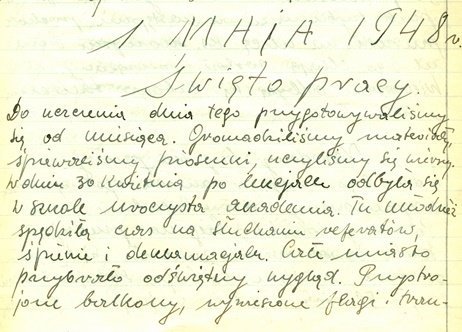 1 MAJA 1948 r.
Święto pracy.
Do uczczenia dnia tego przygotowywaliśmy
się od miesiąca. Gromadziliśmy materiały,
śpiewaliśmy piosenki, uczyliśmy się wierszy.
W dniu 30 kwietnia po lekcjach odbyła się
w szkole uroczysta akademia. Tu młodzież
spędziła czas na słuchaniu referatów,
śpiewie i deklamacjach. Całe miasto
przybrało odświętny wygląd. Przystro-
jone balkony, wywieszone flagi i tran-